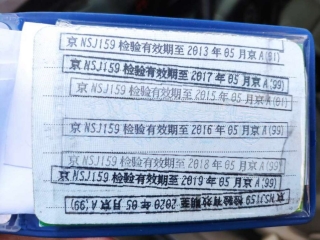 京NSJ159检验有效期至2013年05月京A(91)
京NSJ159检验有效期至2017年05月京A(99)
京NSJ159检验有效期至2015年05月京A(01)
京NSJ159检验有效期至2016年05月京A(99)
京NSJ159检验有效期至2018年05月京A(99)
京NSJ159检验有效期至2019年05月京A(99)
京NSJ159检验有效期至2020年05月京A(99)